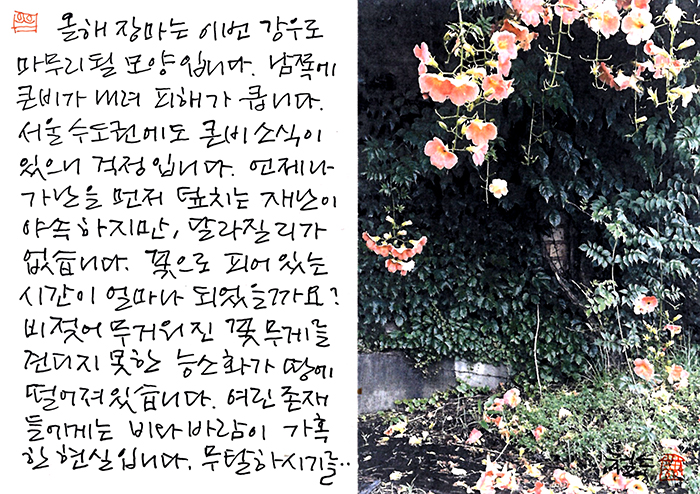 올해 장마는 이번 강우로
마무리될 모양입니다. 남쪽에
큰비가 내려 피해가 큽니다.
서울 수도권에도 큰비 소식이
있으니 걱정입니다. 언제나
가난을 먼저 덮치는 재난이
야속하지만, 달라질리가
없습니다. 꽃으로 피어있는
시간이 얼마나 되었을까요?
비젖어 무거워진 꽃무게를
견디지 못한 능소화가 땅에
떨어져있습니다. 여린존재
들에게는 비와 바람이 가혹
한 현실입니다. 무탈하시기를..